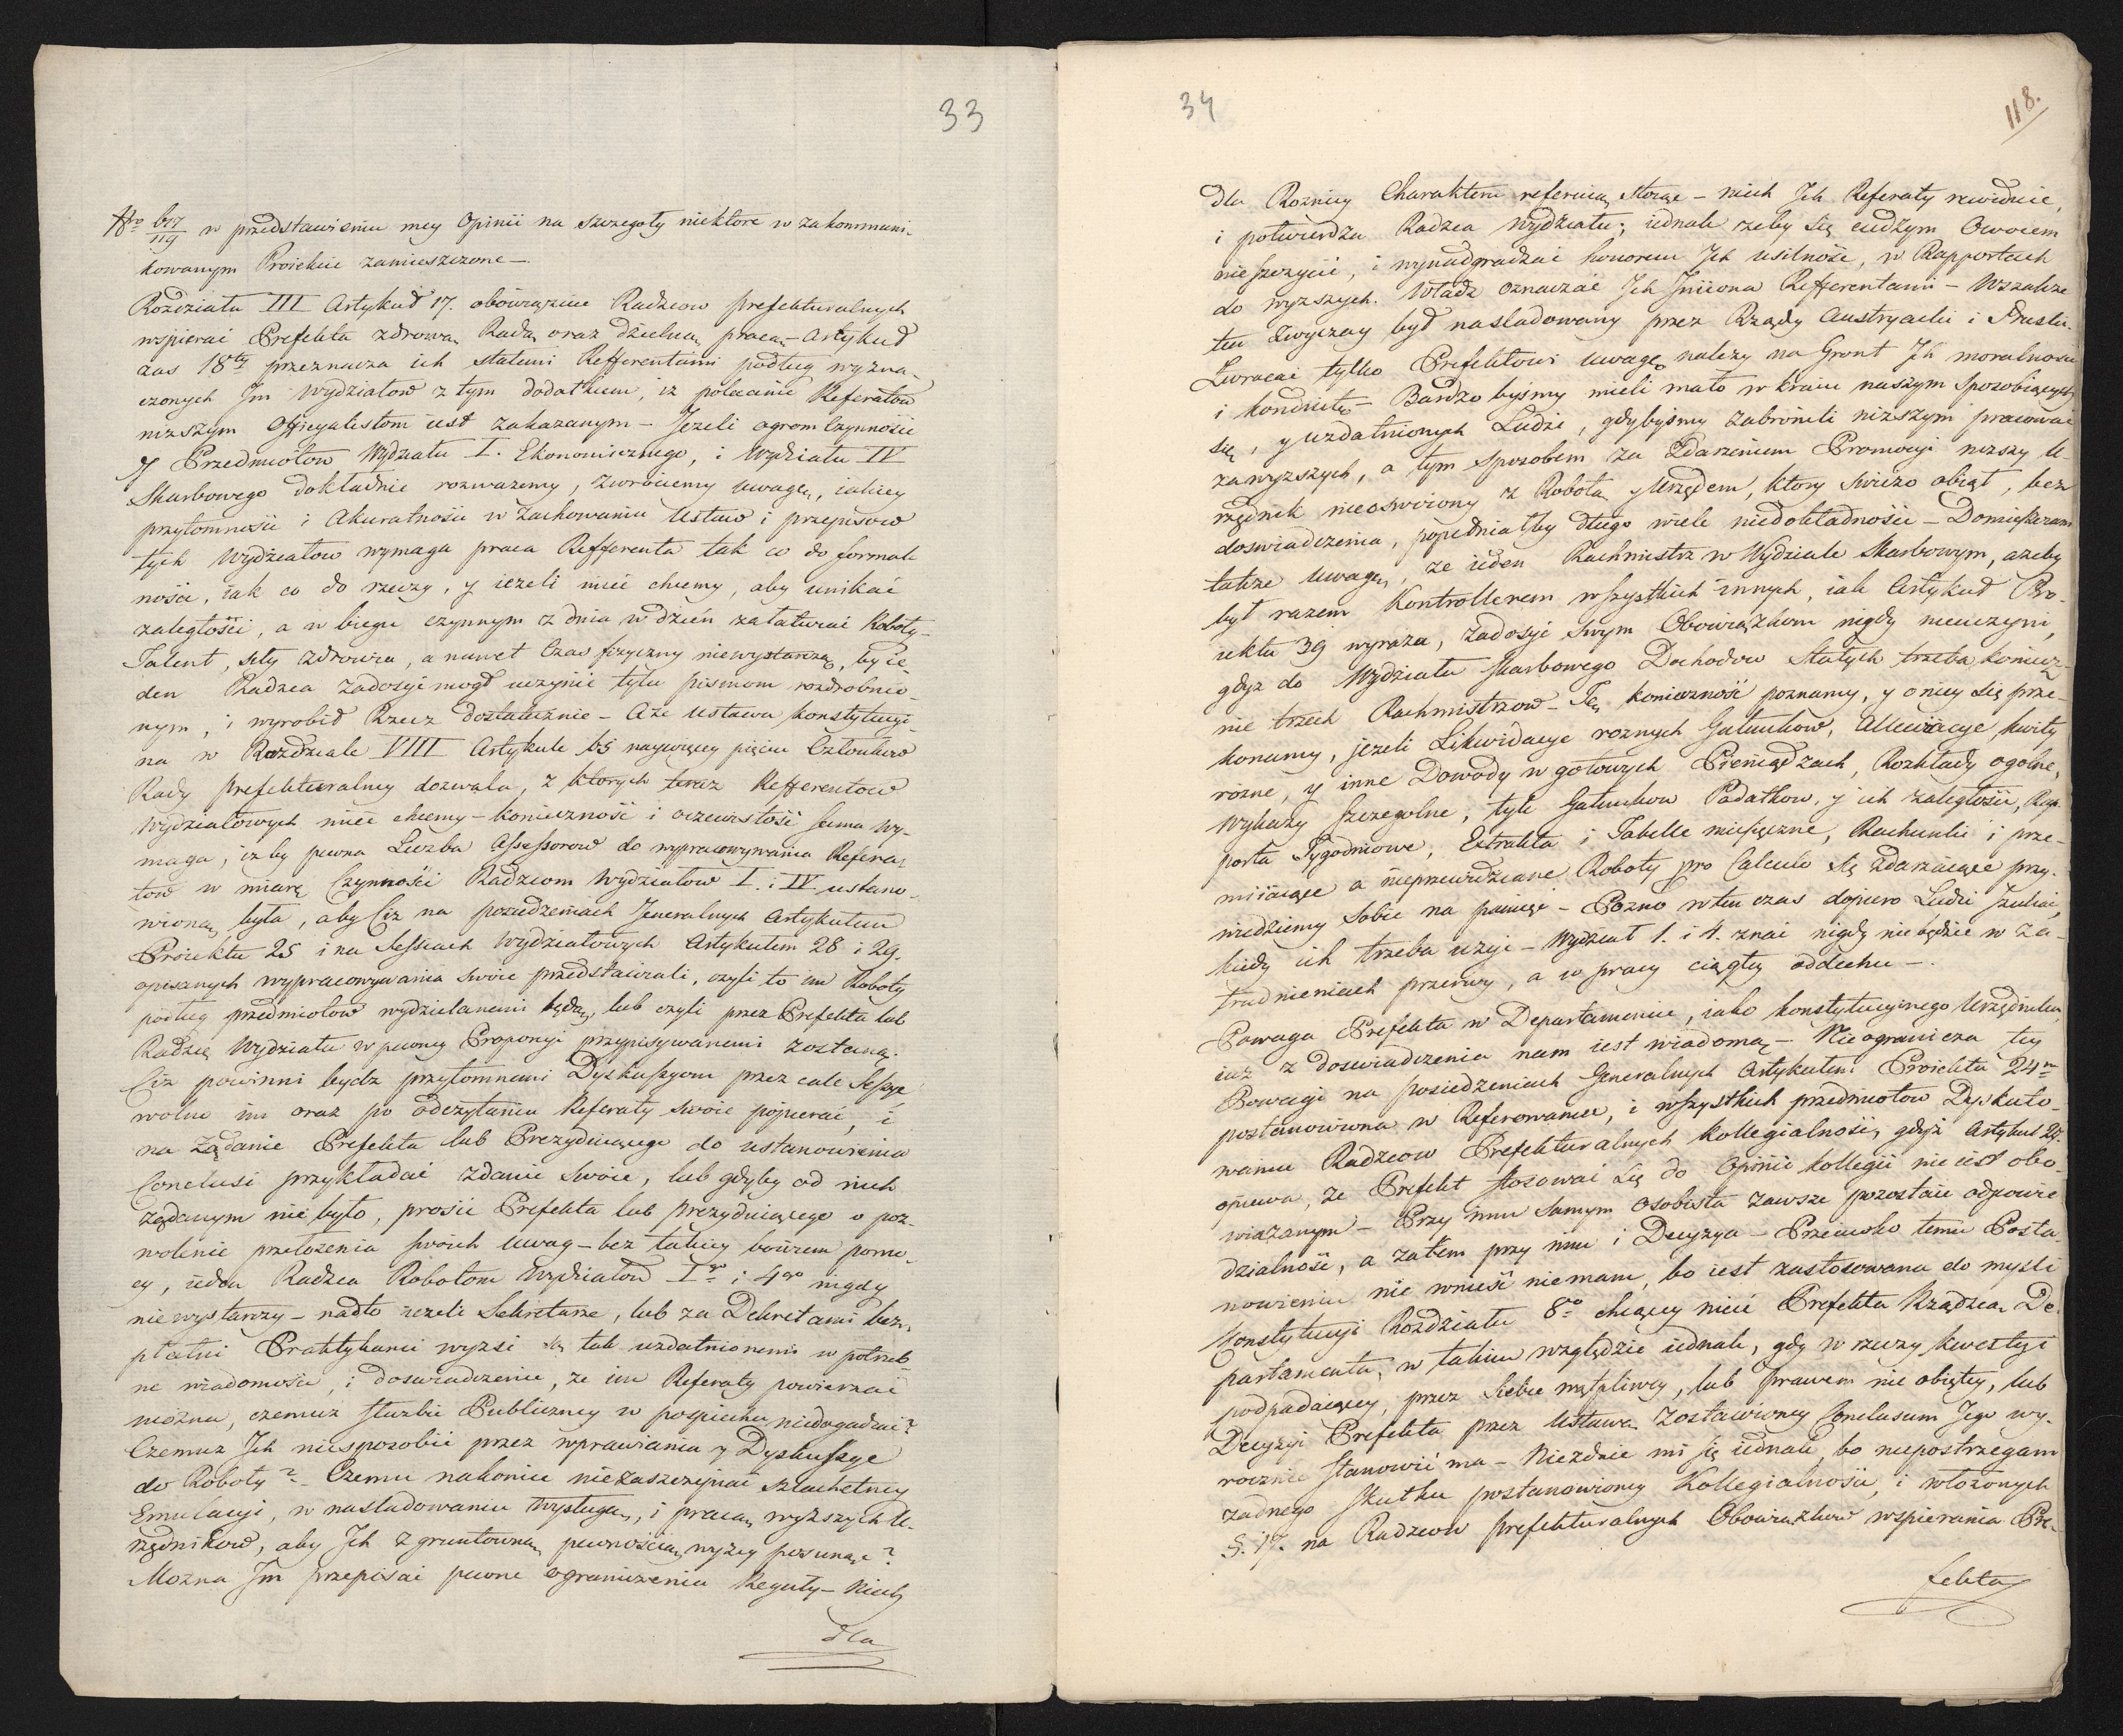 33
Nro 617/119 w przedstawieniu mey Opinii na szczegoły niektore w zakommuni-
kowanym Proiekcie zamieszczone —
Rozdziału III Artykuł 17. obowiązuie Radzcow prefekturalnych
wspierać Prefekta zdrową Radą oraz dzielną pracą — Artykuł
zas 18ty przeznacza ich stałemi Refferentami podług wyzna-
czonych Jm Wydziałow z tym dodatkiem, iz polecanie Referatow
nizszym Officyalistom iest zakazanym — Jezeli ogrom Czynności
y Przedmiotow Wydziału I. Ekonomicznego, i Wydziału IV
Skarbowego dokładnie rozwazemy, zwrociemy uwagę, iakiey
przytomności i Akuratności w Zachowaniu Ustaw i przepisow
tych Wydziałow wymaga praca Refferenta tak co do formal-
ności, iak co do rzeczy, y iezeli mieć chcemy, aby unikać
zaległości, a w biegu czynnym z dnia w dzień załatwiać Roboty —
Talent, siły zdrowia, a nawet Czas fizyczny niewystarczą, by ie-
den Radzca zadosyć mogł uczynić tylu pismom rozdrobnio-
nym, i wyrobił Rzecz dostatecznie — Aze Ustawa konstytucyi-
na w Rozdziale VIII Artykule 65 naywięcey pięciu Członkow
Rady prefekturalney dozwala, z ktorych teraz Refferentow
Wydziałowych mieć chcemy — konieczność i oczewistość sama wy-
maga, iz by pewna Liczba Assessorow do wypracowywania Refera-
tow w miarę Czynności Radzcom Wydziałow I. i IV ustano-
wioną była, aby Ciz na posiedzeniach Jeneralnych Artykułem
Proiektu 25 i na Sessiach Wydziałowych Artykułem 28 i 29.
opisanych wypracowywania swoie przedstawiali, czyli to im Roboty
podług przedmiotow wydzielanemi będą, lub czyli przez Prefekta lub
Radzcę Wydziału w pewney Proporcyi przypisywanemi zostaną.
Ciz powinni bydz przytomnemi Dyskussyom przez całe Sessye
wolno im oraz po odczytaniu Referaty swoie popierać, i
na Ządanie Prefekta lub Prezyduiącego do ustanowienia
Conclusi przykładać zdanie swoie, lub gdyby od nich
ządanym nie było, prosić Prefekta lub prezyduiącego o poz-
wolenie przełozenia swoich Uwag — bez takiey bowiem pomo-
cy, ieden Radzca Robotom Wydziałow Igo i 4go nigdy
niewystarczy — nadto iezeli Sekretarze, lub za Dekretami bez-
płatni Praktykanci wyzsi są tak uzdatnionemi w potrzeb-
ne wiadomości, i doswiadczenie, ze im Referaty powierzać
mozna, czemuz słuzbie Publiczney w pospiechu niedogadzać?
Czemuz Jch niesposobić przez wprawiania y Dyskussye
do Roboty? — Czemu nakoniec niezaszczepiać szlachetney
Emulacyi, w nasladowaniu Wysługą, i pracą wyzszych U-
rzędnikow, aby Jch z gruntowną pewnością wyzey posunąć?
Mozna Jm przepisać pewne ograniczenia Reguły — Niech
dla
34
118.
dla Roznicy Charakteru referuią stoiąc — niech Jch Referaty rewiduie,
i potwierdza Radzca Wydziału; iednak zeby się cudzym Owocem
nieszczycić, i wynadgradzać honorem Jch usilność, w Rapportach
do wyzszych Władz oznaczać Jch Jmiona Refferentami — Wszakze
ten Zwyczay był nasladowany przez Rządy Austryackie i Pruskie.
Zwracać tylko Prefektowi uwagę nalezy na Grunt Jch moralności
i konduitę — Bardzo byśmy mieli mało w kraiu naszym sposobiących
się, y uzdatnionych Ludzi, gdybyśmy zabronili nizszym pracować
za wyzszych, a tym sposobem za Zdarzeniem Promocyi nizszy U-
rzędnik nieoswoiony z Robotą y Urzędem, ktory swiezo obiął, bez
doswiadczenia, popełniałby długo wiele niedokładności — Domieszczam
takze Uwagę, ze ieden Rachmistrz w Wydziale Skarbowym, azeby
był razem Kontrollerem wszystkich innych, iak Artykuł Pro-
iektu 39 wyraza, zadosyć swym Obowiązkom nigdy nieuczyni,
gdyz do Wydziału Skarbowego Dochodow Stałych trzeba koniecz-
nie trzech Rachmistrzow — Tę konieczność poznamy, y o niey się prze-
konamy, jezeli Likwidacye roznych Gatunkow, Allewiacye kwity
rozne, y inne Dowody w gotowych Pieniądzach, Rozkłady ogolne,
Wykazy szczegolne, tyle Gatunkow Podatkow, y ich zaległości, Rap-
porta Tygodniowe, Extrakta i Tabelle miesięczne, Rachunki i prze-
miiaiące a nieprzewidziane Roboty pro Calculo się zdarzaiące przy-
wiedziemy Sobie na pamięć — Pozno w ten czas dopiero Ludzi szukać,
kiedy ich trzeba uzyć — Wydział 1. i 4. znać nigdy nie będzie w Za-
trudnieniach przerwy, a w pracy ciągłey oddechu —
Powaga Prefekta w Departamencie, iako konstytucyinego Urzędnika,
iuz z doswiadczenia nam iest wiadomą — Nieogranicza tey
Powagi na posiedzeniach Generalnych Artykułem Proiekta 24m
postanowiona w Referowaniu, i wszystkich przedmiotow Dyskuto-
waniu Radzcow Prefekturalnych kollegialność, gdyz Artykuł 27.
opiewa, ze Prefekt stosować się do Opinii kollegii nie iest obo-
wiązanym — Przy nim samym osobista zawsze pozostaie odpowie-
dzialność, a zatem przy nim i Decyzya — Przeciwko temu Posta-
nowieniu nic wnieść niemam, bo iest zastosowana do mysli
konstytucyi Rozdziału 8o chcącey mieć Prefekta Rządzcą De-
partamentu; w takim względzie iednak, gdy w rzeczy kwestyi
podpadaiącey, przez Siebie wątpliwey, lub prawem nie obiętey, lub
Decyzyi Prefekta przez Ustawę zostawioney Conclusum Jego wy-
rocznie stanowić ma — Niezdaie mi się iednak, bo niepostrzegam
zadnego skutku postanowioney Kollegialności, i włozonych
§. 17. na Radzcow prefekturalnych Obowiązkow wspierania Pre-
fekta